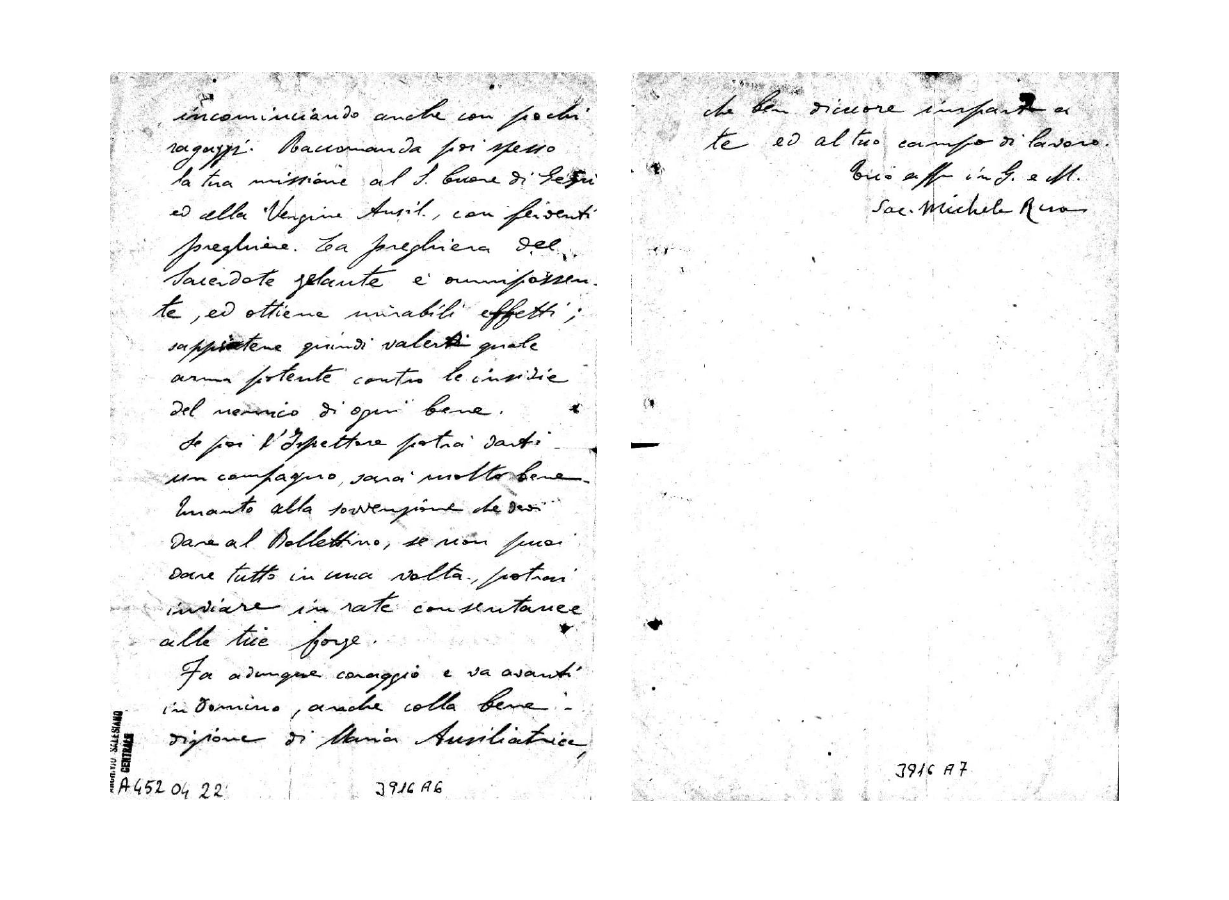 incominciando anche con pochi
ragazzi. Raccomanda poi spesso
la tua missione al S. Cuore di Gesù
ed alla Vergine Ausil., con ferventi
preghiere. La preghiera del
Sacerdote zelante è onnipossen-
te, ed ottiene mirabili effetti;
sappitene quindi valerti quale
arma potente contro le insidie
del nemico di ogni bene.
Se poi l'Ispettore potrà darti
un compagno, sarà molto bene.
Quanto alla sovvenzione che devi
dare al Bollettino, se non puoi
dare tutto in una volta, potrai
inviare in rate consentanee
alle tue forze.
Fa adunque coraggio e va avanti
in Domino, anche colla bene-
dizione di Maria Ausiliatrice,
ARCHIVIO SALESIANO
CENTRALE
A 452 04 22
3916 A6
che ben di cuore imparto a
te ed al tuo campo di lavoro.
Tuo aff in G. e M.
Sac. Michele Rua
3916 A7